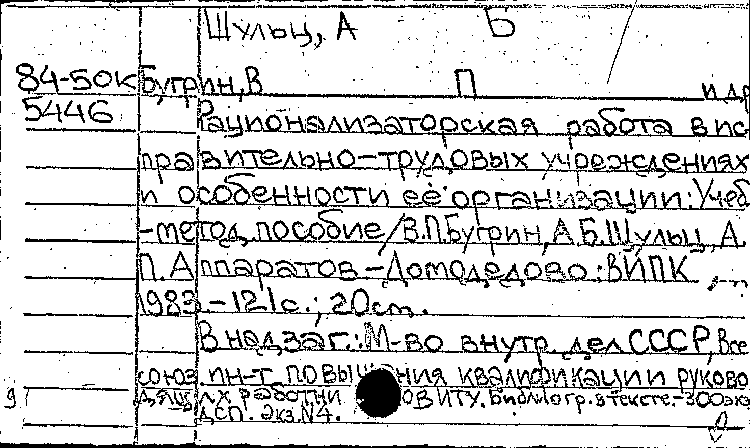 Шульц, А Б
84-50к Бугрин, В П и др
5446 Рационализаторская работа в ис
правительно-трудовых учреждениях
и особенности её организации: Учеб
-метод. пособие / В.П. Бугрин, А.Б. Шульц, А.
П. Аппаратов. - Домодедово: ВИПК,
1983. - 121с.; 20см.
В надзаг.: М-во внутр. дел СССР, Все
союз. ин-т повышения квалификации руково
дящ. работни ов ИТУ. Библиогр. в тексте. - 300 экз
ДСП. Экз. №4.
9